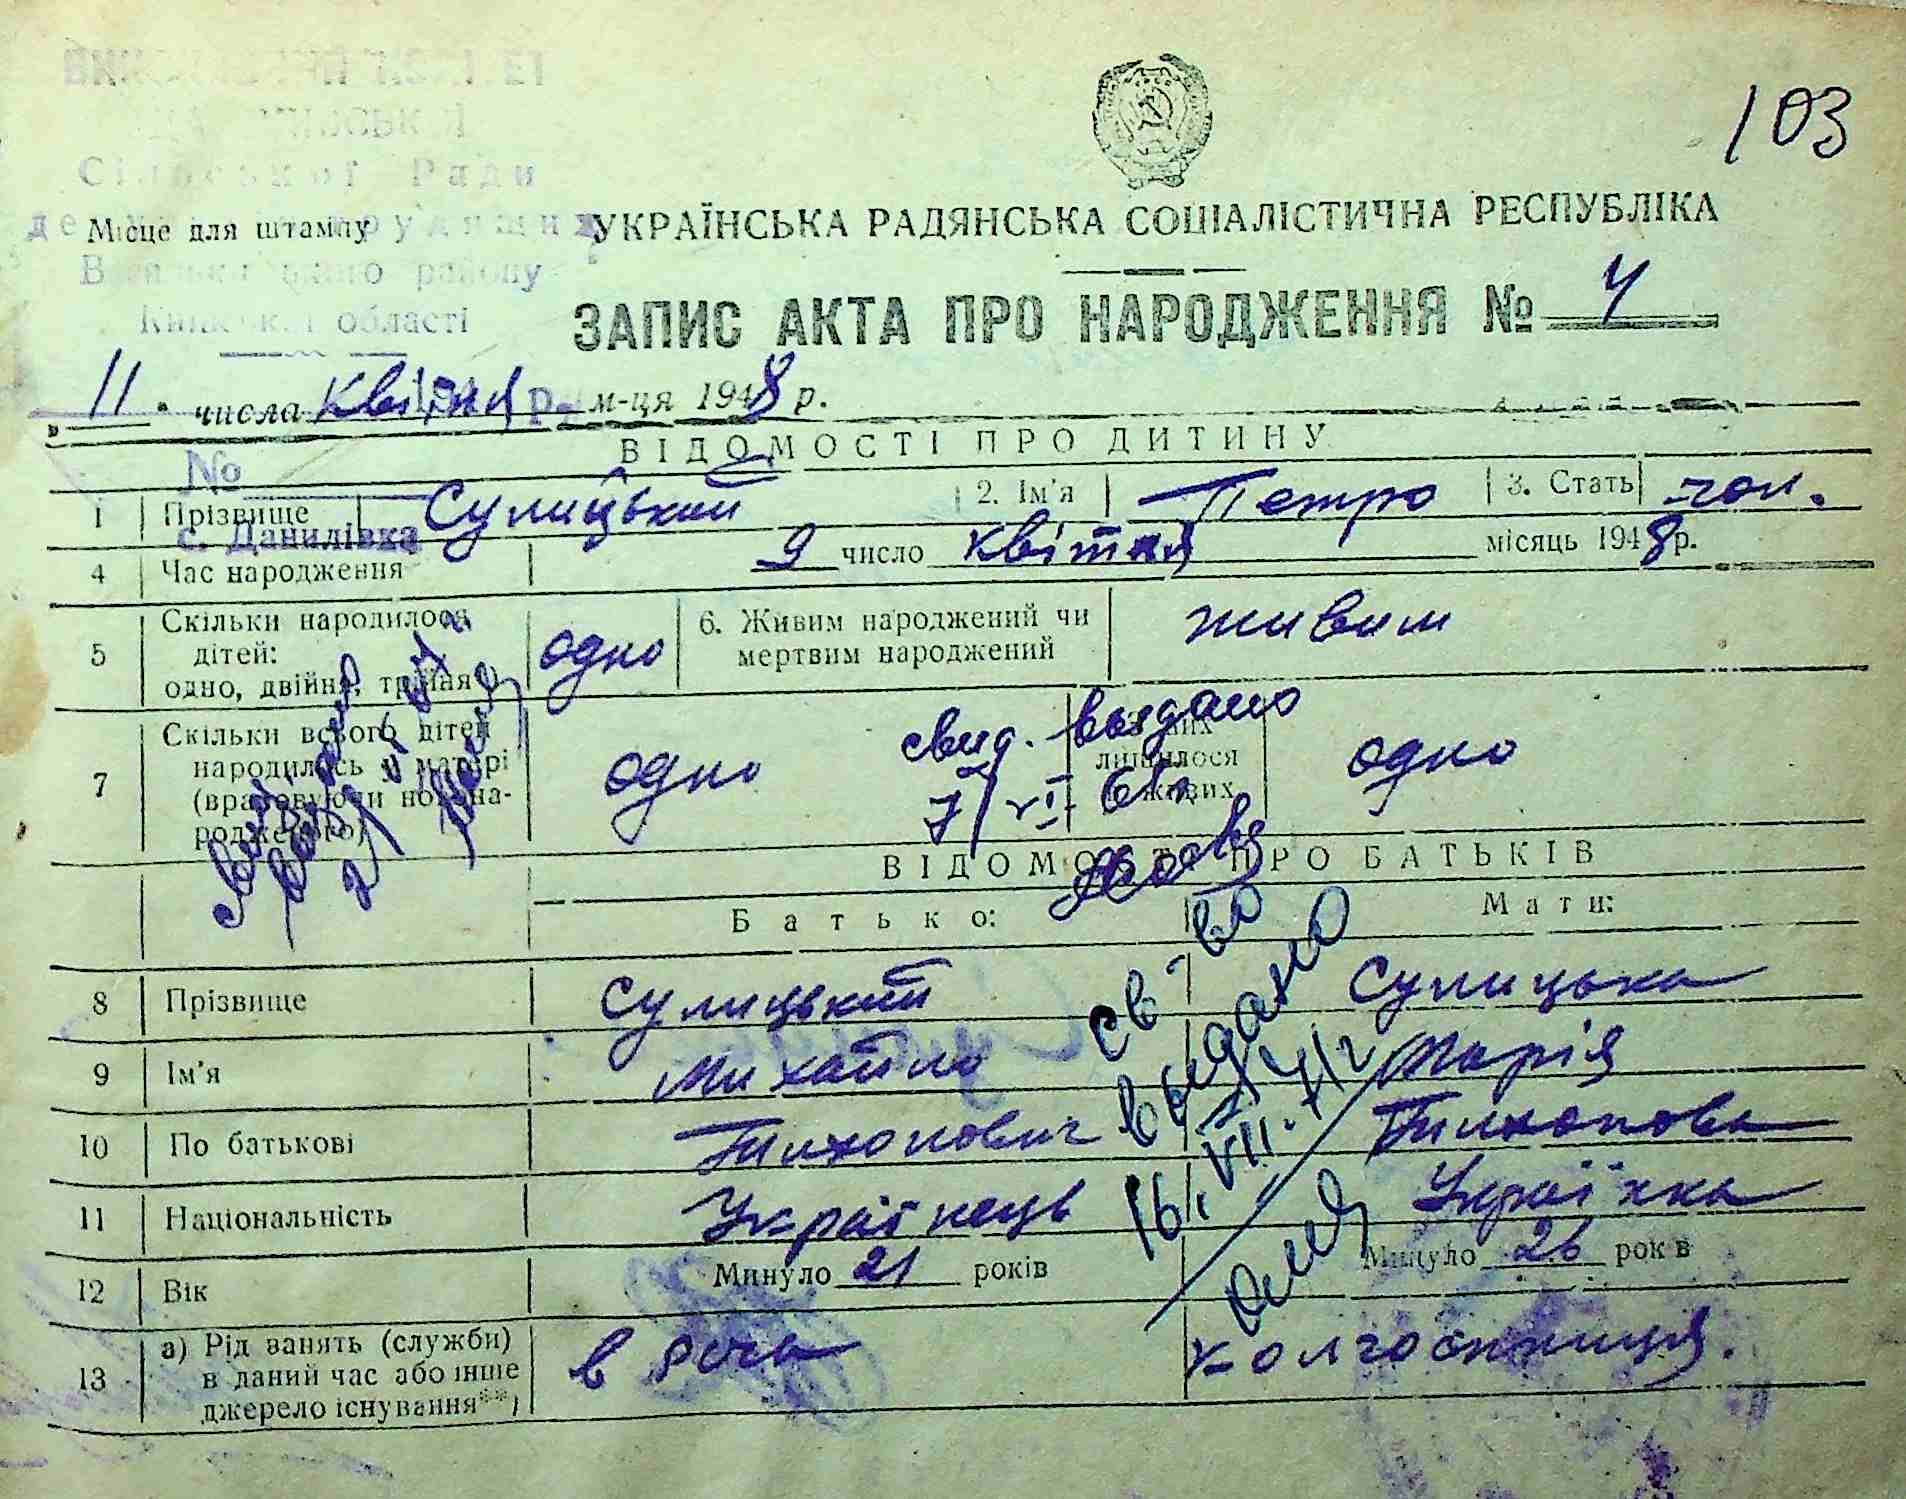 103
Сільської Ради
Місце для штампу УКРАЇНСЬКА РАДЯНСЬКА СОЦІАЛІСТИЧНА РЕСПУБЛІКА
району
області
ЗАПИС АКТА ПРО НАРОДЖЕННЯ № 4
„ 11 " числа квітня м-ця 1948 р.
ВІДОМОСТІ ПРО ДИТИНУ
№
1 Прізвище Сулицький 2. Ім'я Петро 3. Стать чол.
с. Данилівка
4 Час народження 9 число квітня місяць 1948 р.
5 Скільки народилося дітей: одно, двійня, трійня одно 6. Живим народжений чи мертвим народжений живим
7 Скільки всього дітей народилось у матері (враховуючи новонародженого) одно З них лишилося живих одно
свид. выдано
7/VI
ВІДОМОСТІ ПРО БАТЬКІВ
Батько: Мати:
св-во
выдано
16/VII-
8 Прізвище Сулицький Сулицька
9 Ім'я Михайло Марія
10 По батькові Тихонович Тихоновна
11 Національність Українець Українка
12 Вік Минуло 21 років Минуло 26 років
13 а) Рід занять (служби) в даний час або інше джерело існування**) в колгоспниця.